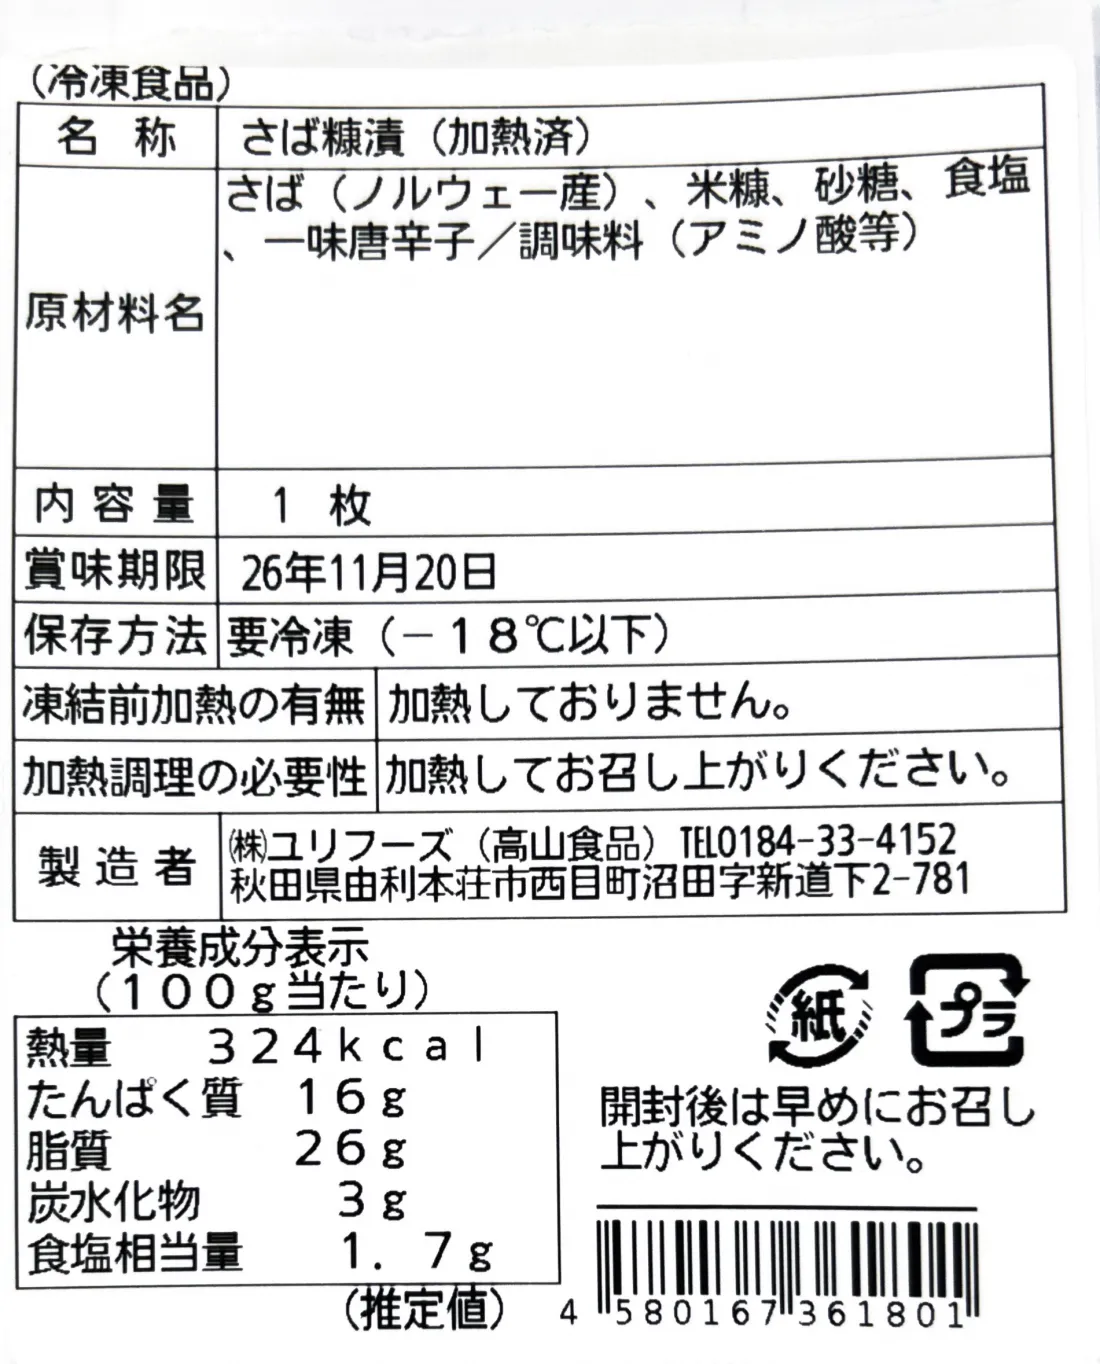 （冷凍食品）
名 称 さば糠漬（加熱済）
原材料名 さば（ノルウェー産）、米糠、砂糖、食塩
、一味唐辛子／調味料（アミノ酸等）
内容量 1 枚
賞味期限 26年11月20日
保存方法 要冷凍（－１８℃以下）
凍結前加熱の有無 加熱しておりません。
加熱調理の必要性 加熱してお召し上がりください。
製造者 ㈱ユリフーズ（高山食品）TEL0184-33-4152
秋田県由利本荘市西目町沼田字新道下2-781
栄養成分表示
（１００ｇ当たり）
熱量 ３２４ｋｃａｌ
たんぱく質 １６ｇ
脂質 ２６ｇ
炭水化物 ３ｇ
食塩相当量 １．７ｇ
（推定値）
紙 プラ
開封後は早めにお召し
上がりください。
4 580167 361801